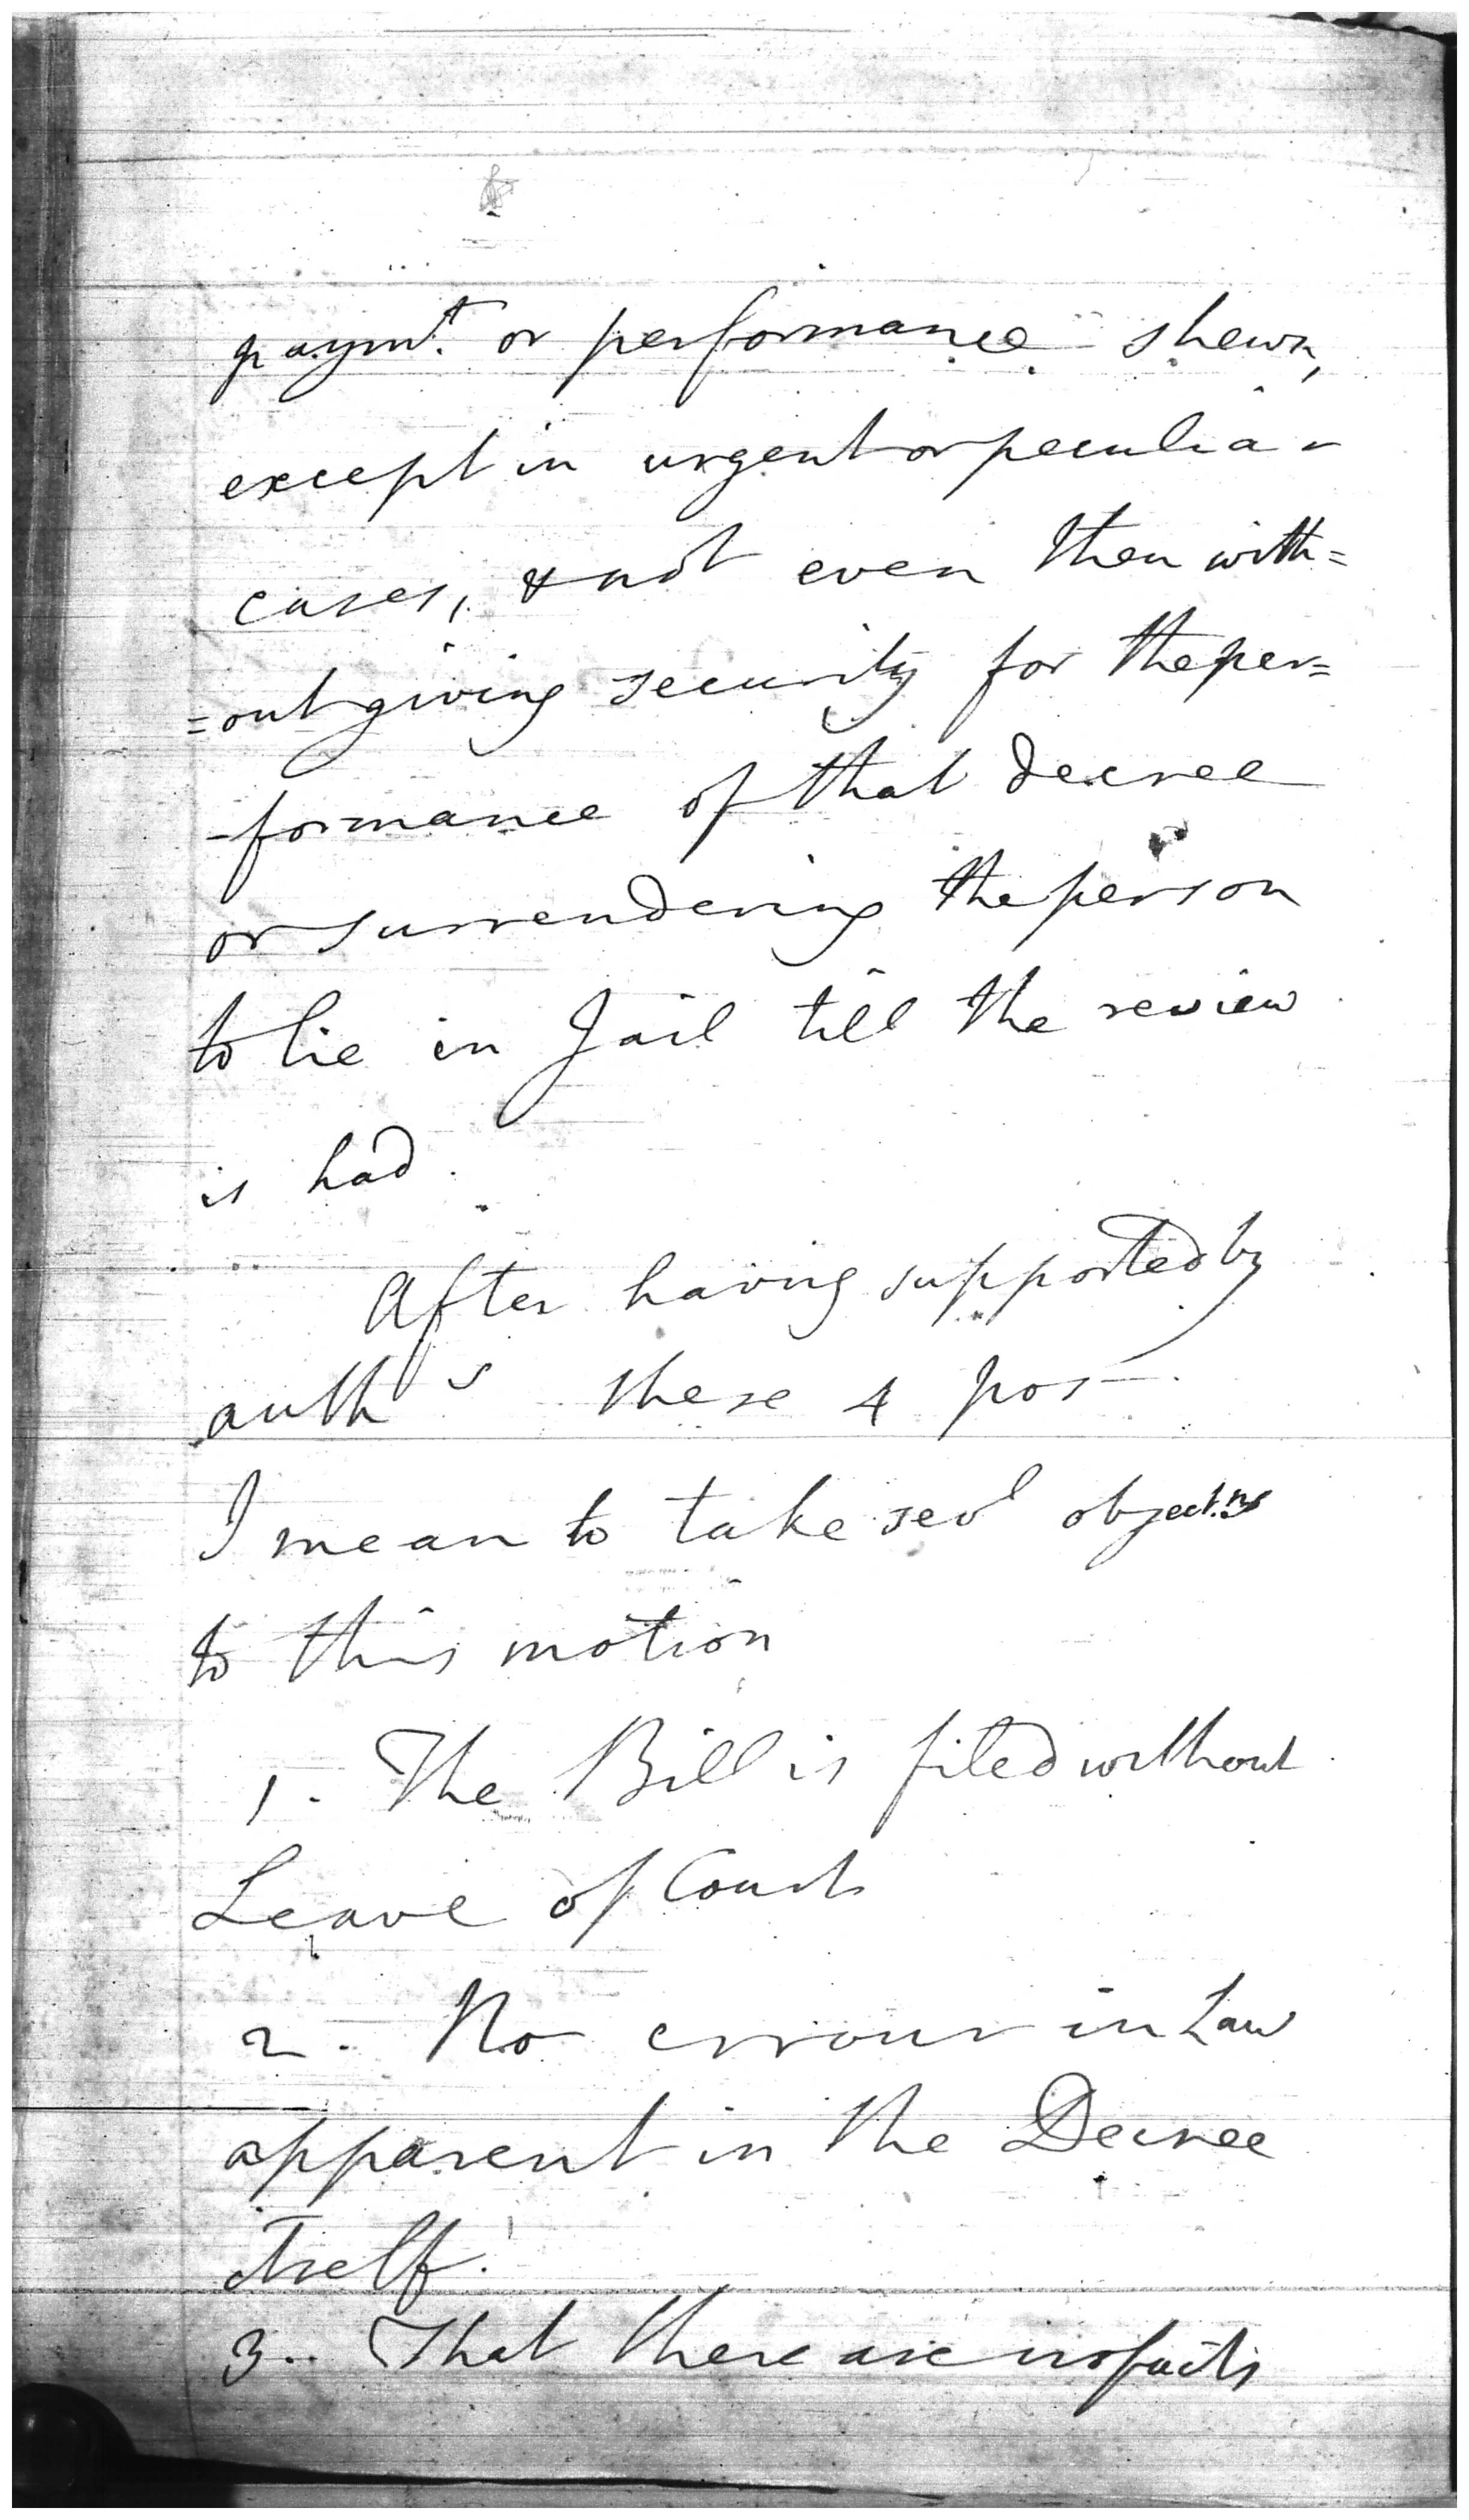 paymt. or performance shewn,
except in urgent or peculiar
cases, & not even then with=
=out giving security for the per=
-formance of that decree
or surrendering the person
to lie in Jail till the review
is had.
After having supported by
auths these 4 pos—.
I mean to take sevl objectns
to this motion
1. The Bill is filed without
Leave of Court
2. No errour in Law
apparent in the Decree
itself.
3.. That there are no facts